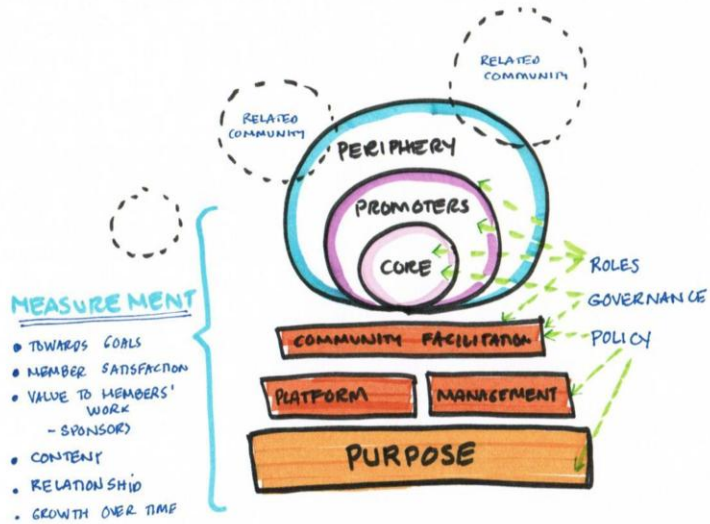 RELATED
COMMUNITY
RELATED
COMMUNITY
PERIPHERY
PROMOTERS
CORE
ROLES
GOVERNANCE
POLICY
COMMUNITY FACILITATION
PLATFORM
MANAGEMENT
PURPOSE
MEASUREMENT
• TOWARDS GOALS
• MEMBER SATISFACTION
• VALUE TO MEMBERS'
WORK
- SPONSORS
• CONTENT
• RELATIONSHIP
• GROWTH OVER TIME